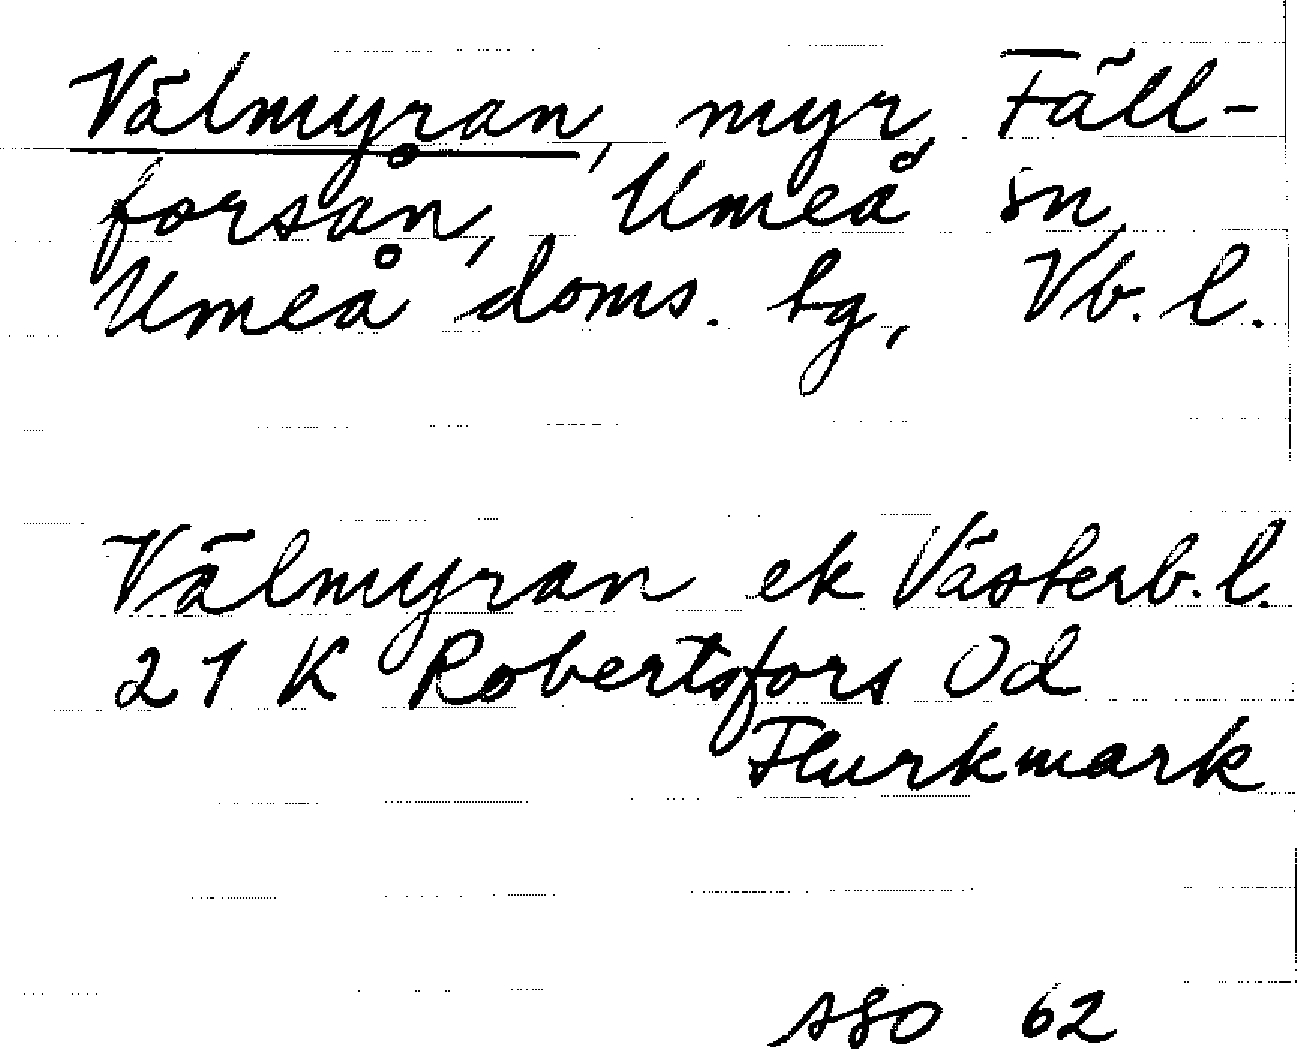 Välmyran, myr, Fäll-
forsån, Umeå sn,
Umeå doms. tg, Vb. l.
Välmyran ek Västerb. l.
21 K Robertsfors 0d
Flurkmark
ASO 62